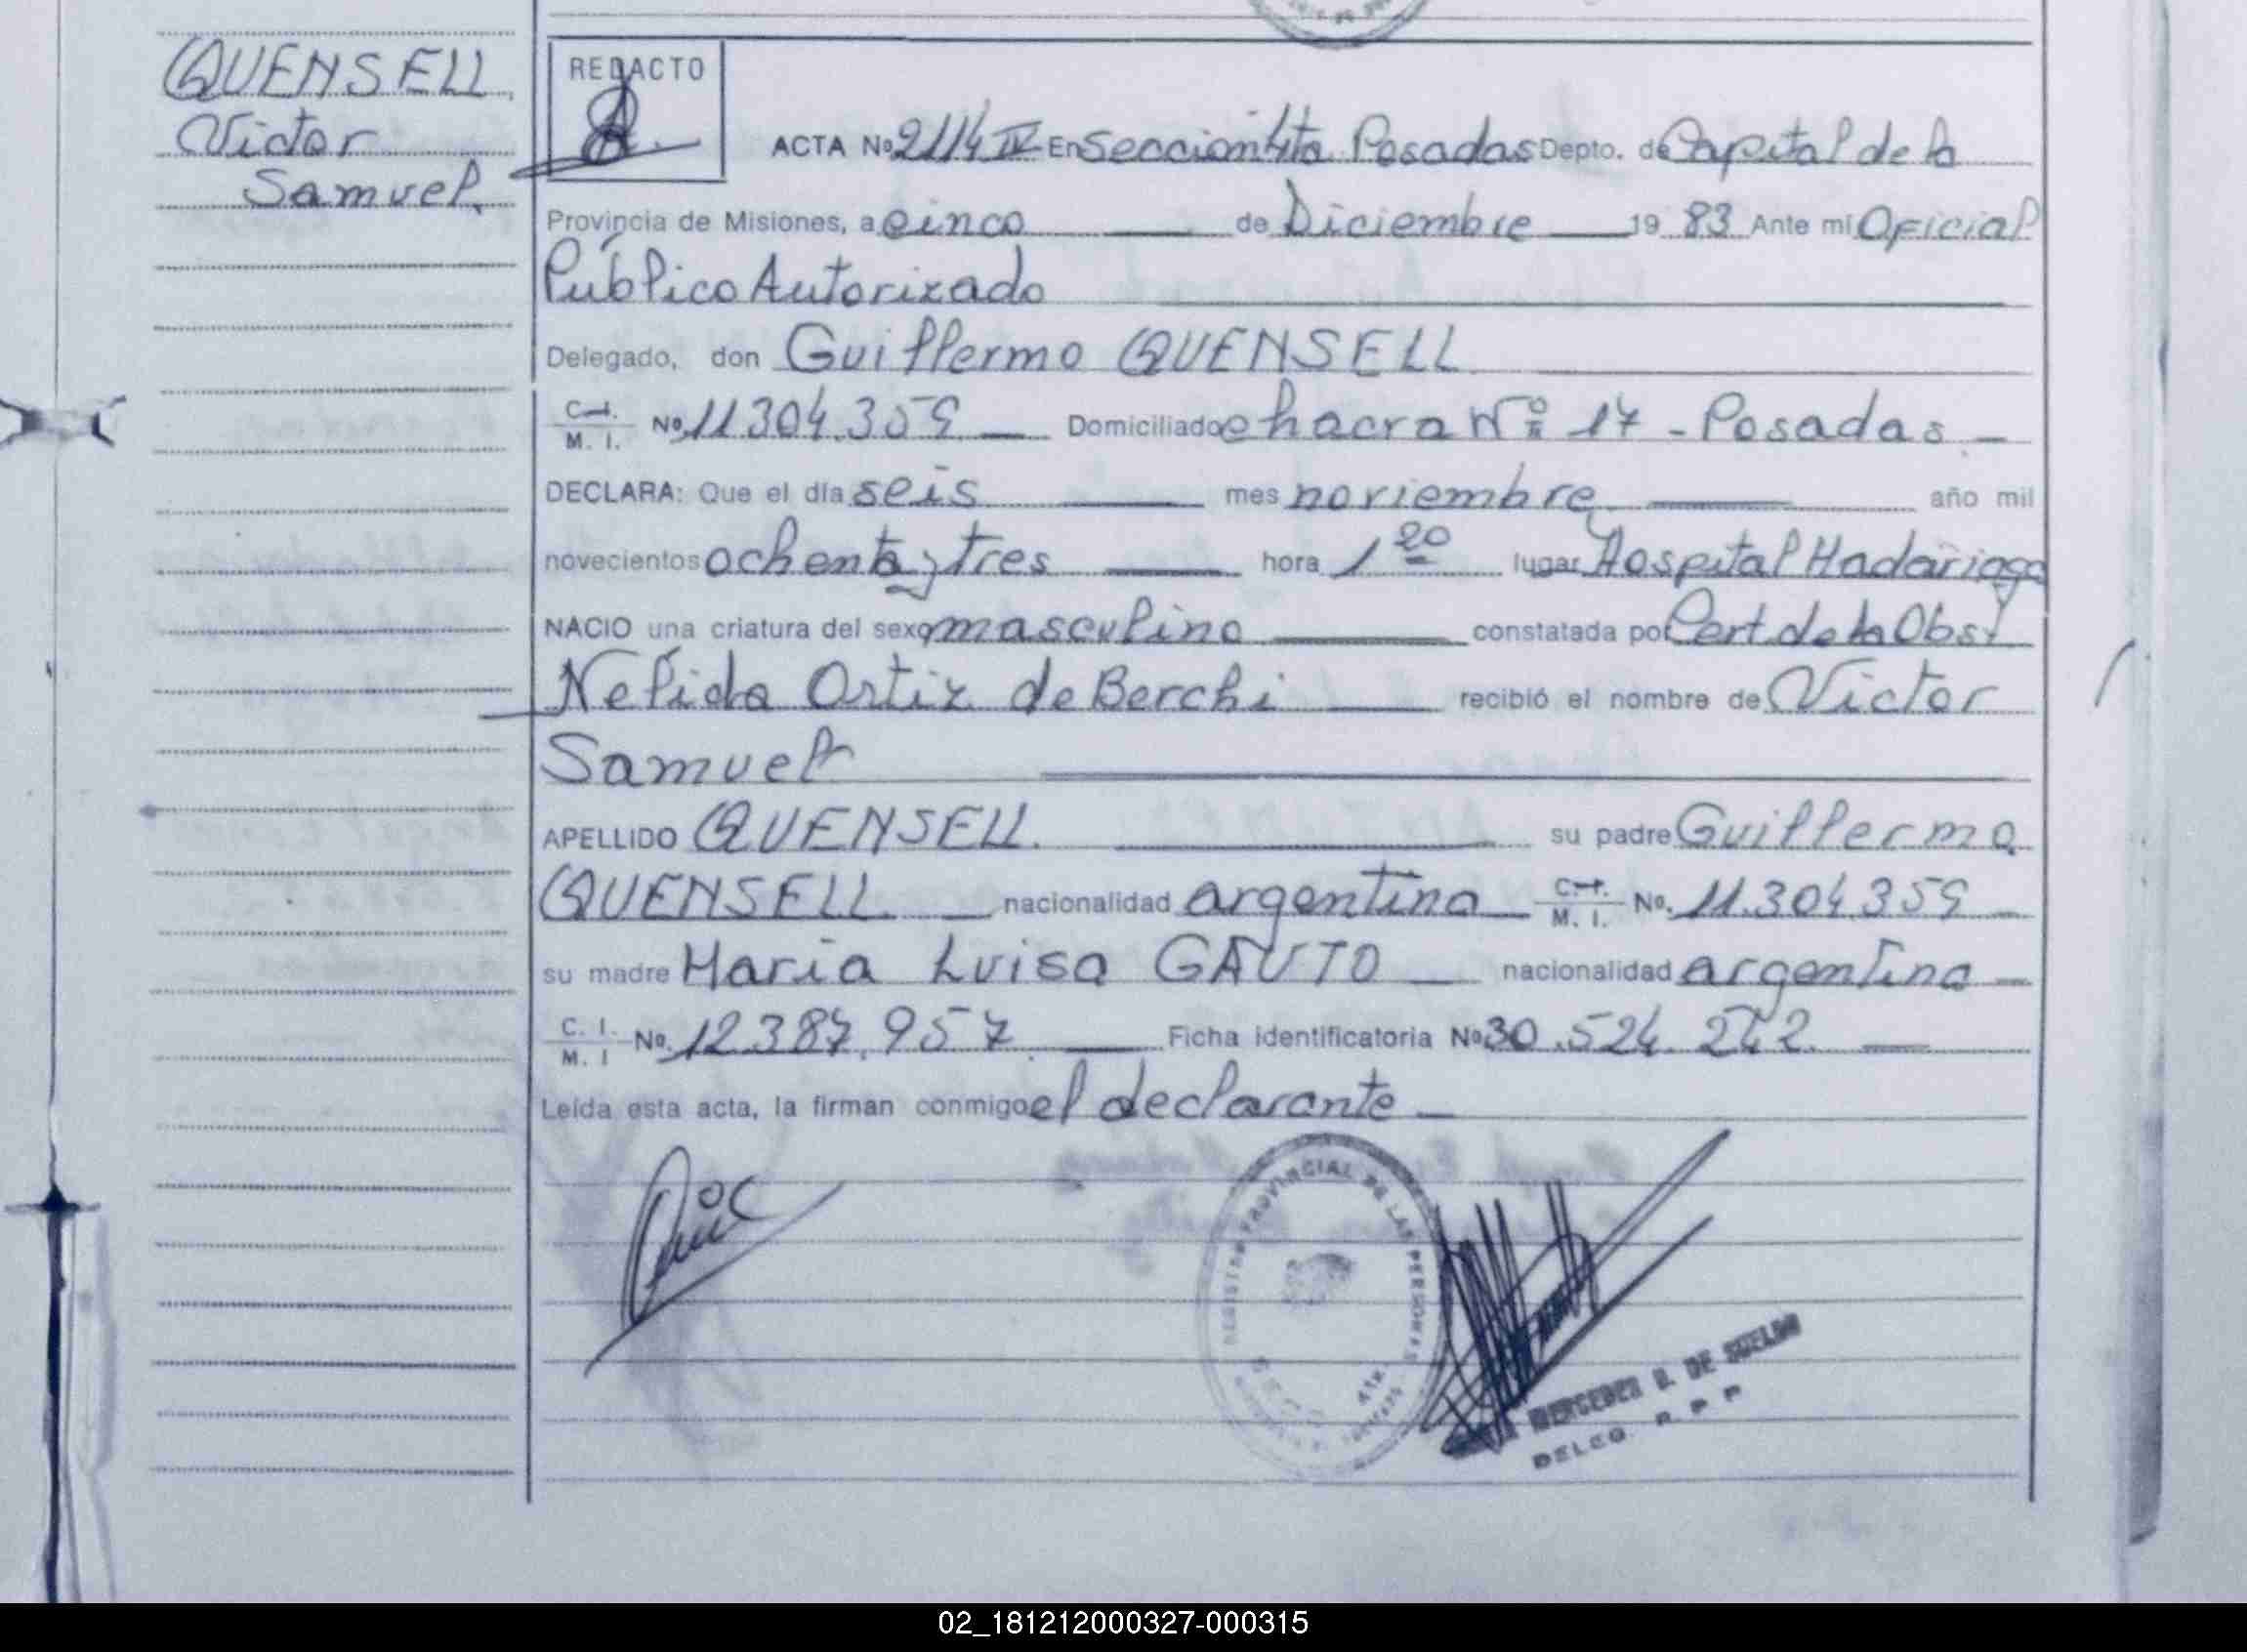 QUENSELL
Victor
Samuel.
REDACTO
ACTA Nº 2114 IV En Seccion 4ta Posadas Depto. de Capital de la
Provincia de Misiones, a cinco de Diciembre 19 83 Ante mí Oficial
Público Autorizado
Delegado, don Guillermo QUENSELL
C.I. M. I. Nº 11.304.359 Domiciliado chacra Nº 17 - Posadas -
DECLARA: Que el día seis mes noviembre año mil
novecientos ochenta y tres hora 1 20 lugar Hospital Madariaga
NACIO una criatura del sexo masculino constatada por Cert. de la Obst
Nélida Ortiz de Berchi recibió el nombre de Victor
Samuel
APELLIDO QUENSELL. su padre Guillermo
QUENSELL nacionalidad argentina C.I. M. I. Nº. 11.304.359
su madre Maria Luisa GAUTO nacionalidad argentina
C. I. M. I Nº. 12.387.957 Ficha identificatoria Nº 30.524.242.
Leída esta acta, la firman conmigo el declarante
REGISTRO PROVINCIAL DE LAS PERSONAS
4ta.
DE SUELDO
DELEG. R P P
02_181212000327-000315